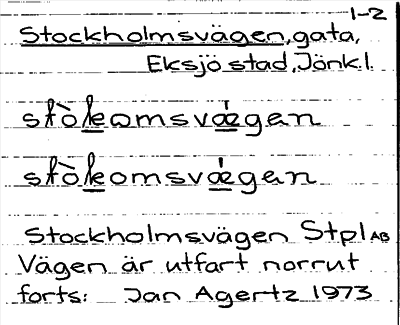 1-2
Stockholmsvägen, gata,
Eksjö stad, Jönk.l.
stòkomsvǽgan
stòkomsvǽgan
Stockholmsvägen Stpl AB
Vägen är utfart norrut
forts: Jan Agertz 1973